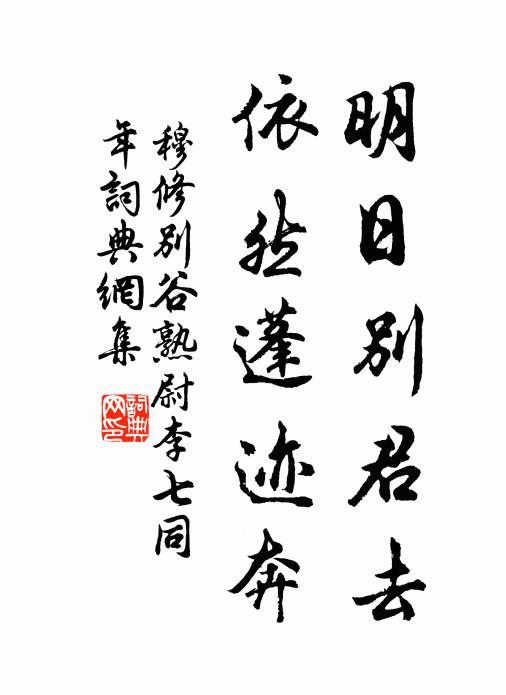 明日别君去
依然蓬迹奔
穆修别谷熟尉李七同
年詞典網集
詞典
网印